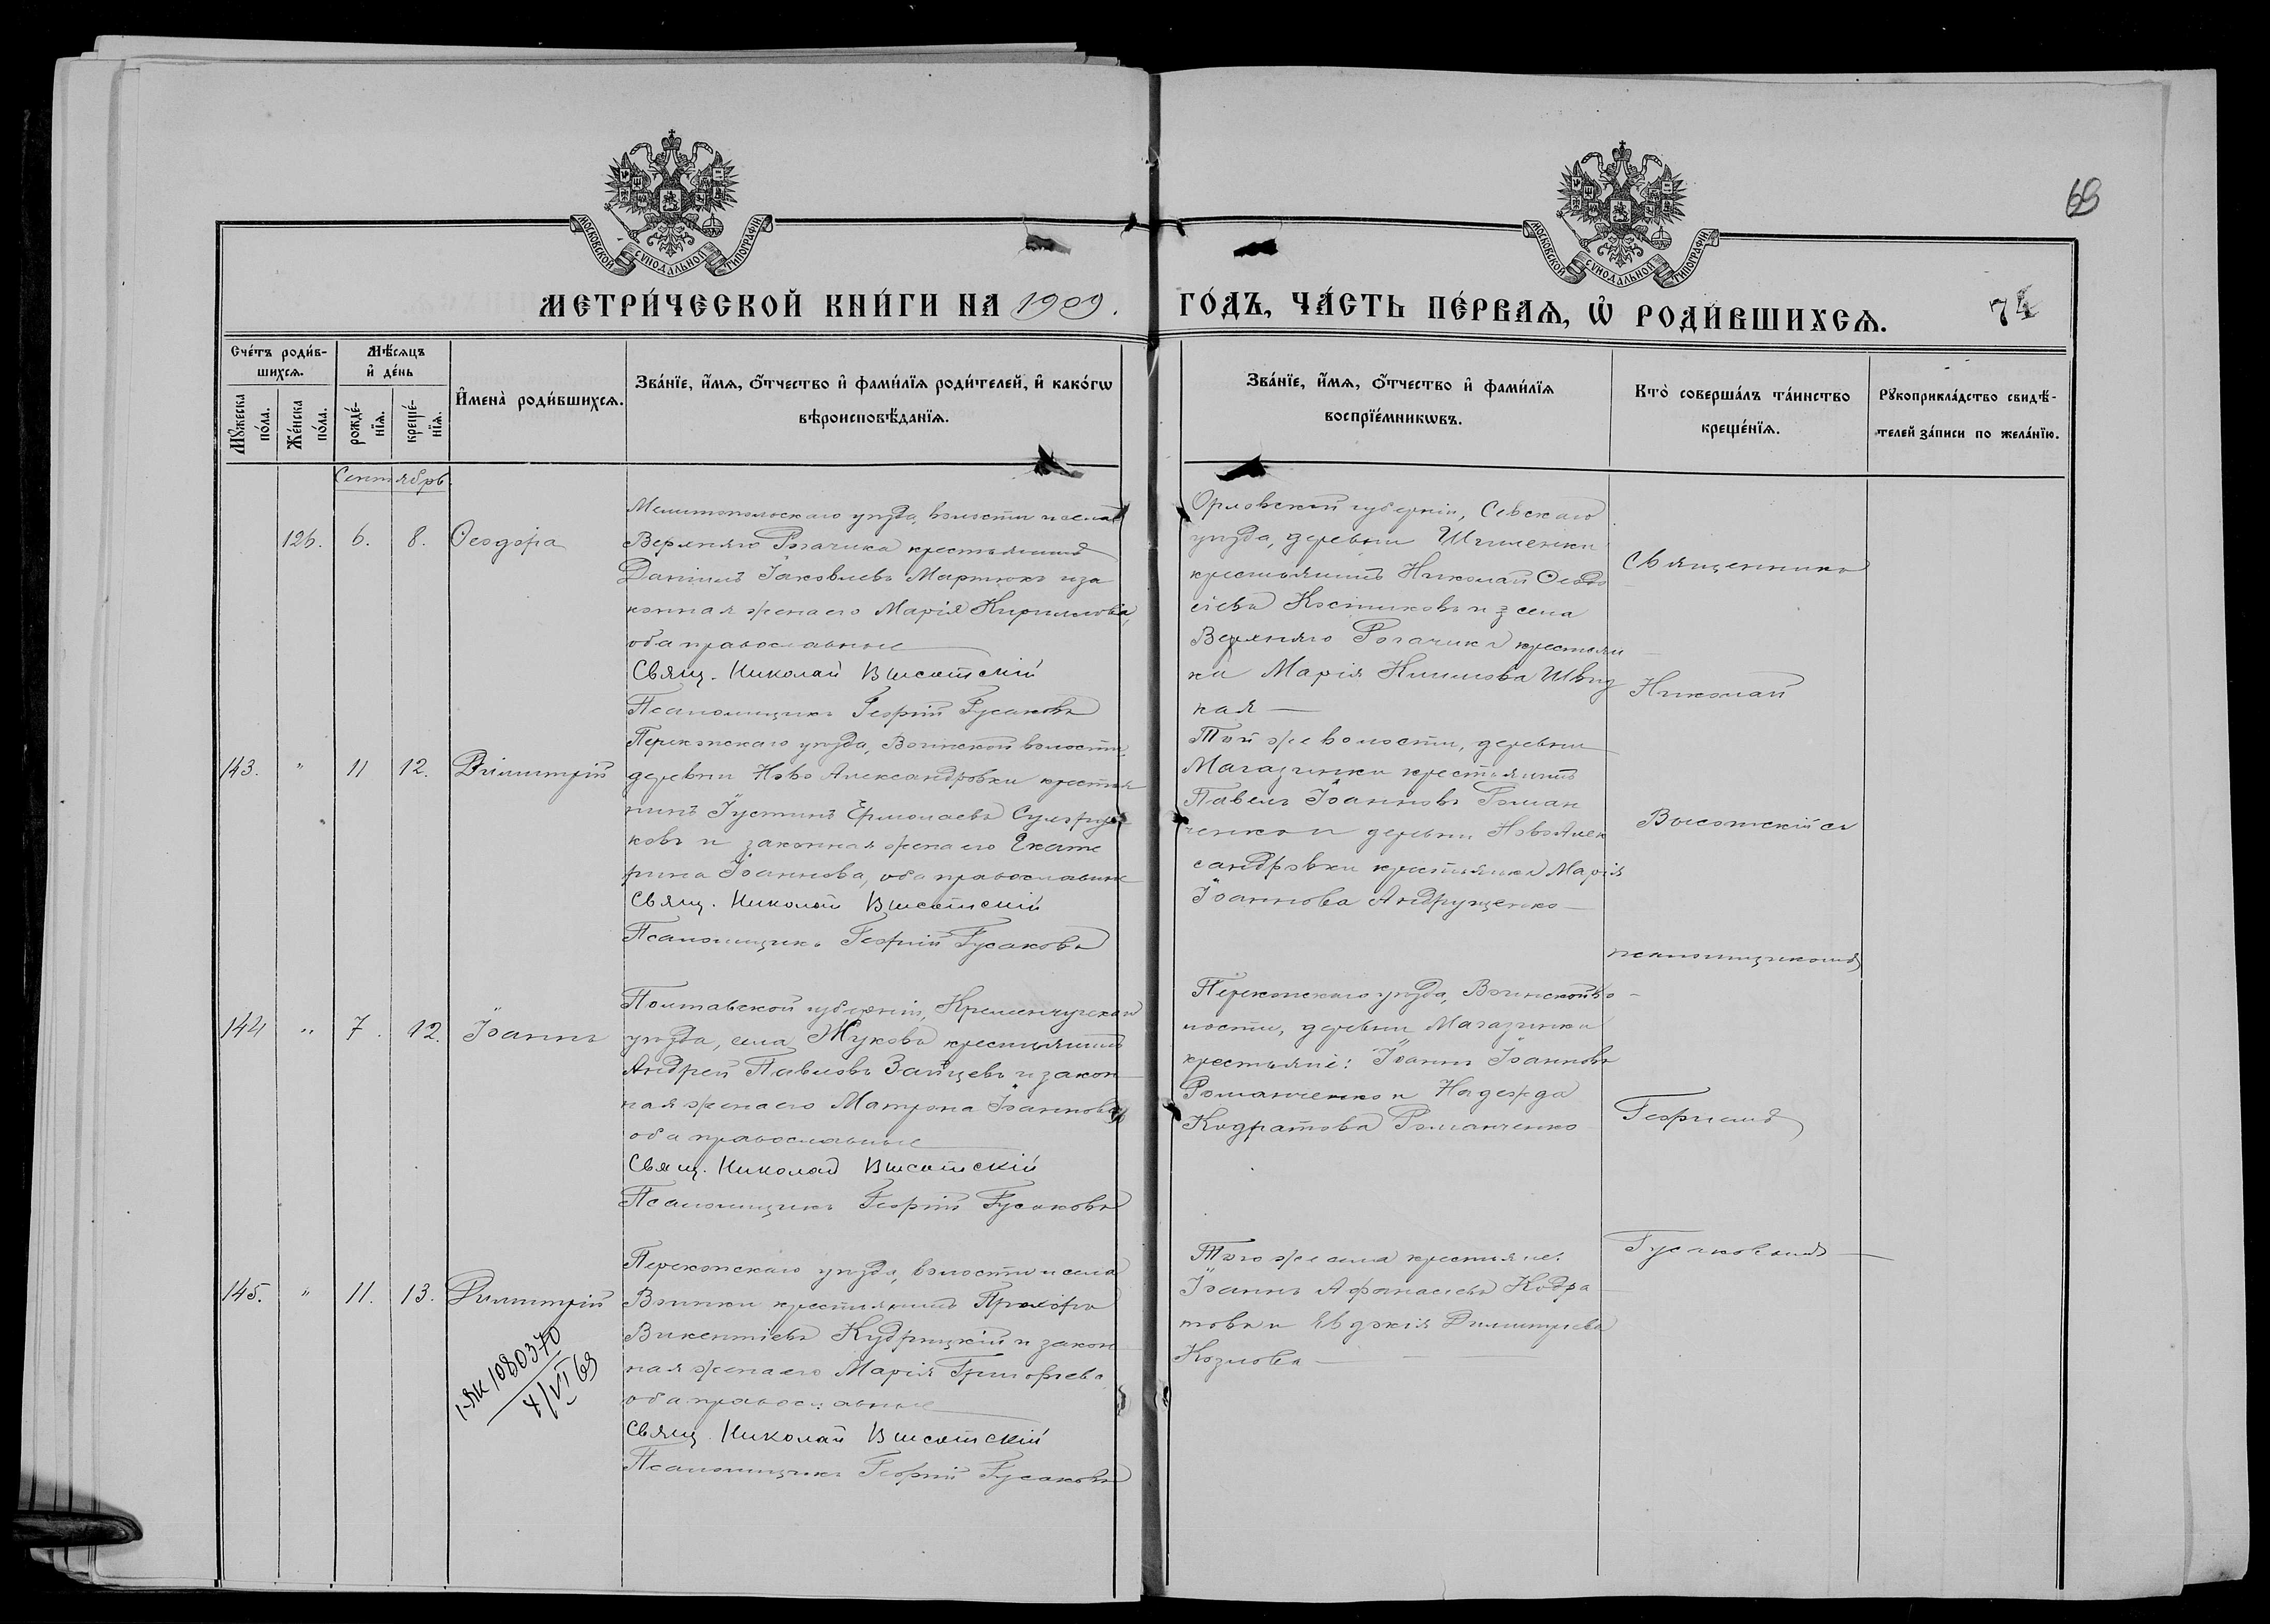 МОСКОВСКОЙ СѴНОДАЛЬНОЙ ТИПОГРАФІИ
МОСКОВСКОЙ СѴНОДАЛЬНОЙ ТИПОГРАФІИ
69
МЕТРИ́ЧЕСКОЙ КНИ́ГИ НА 1909.
ГО́ДЪ, ЧА́СТЬ ПЕ́РВАѦ, Ѡ҆ РОДИ́ВШИХСѦ.
74
Сче́тъ роди́в-
шихсѧ.
Мѣ́сѧцъ
и҆ де́нь
Мꙋ́жеска
по́ла.
Же́нска
по́ла.
рожде́-
нїѧ.
креще́-
нїѧ.
И҆мена̀ роди́вшихсѧ.
Зва́нїе, и҆́мѧ, ѻ҆́тчество и҆ фами́лїѧ роди́телей, и҆ како́гѡ
вѣроисповѣ́данїѧ.
Зва́нїе, и҆́мѧ, ѻ҆́тчество и҆ фами́лїѧ
воспрїе́мникѡвъ.
Кто̀ соверша́лъ та́инство
креще́нїѧ.
Рꙋкоприкла́дство свидѣ́-
телей за́писи по жела́нїю.
Сентябрь.
126. 6. 8. Ѳеодора
Мелитопольскаго уѣзда, волости и села
Верхняго Рогачика крестьянинъ
Даніилъ Іаковлевъ Мартюкъ и за
конная жена его Марія Кириллова,
оба православные
Свящ. Николай Высотскій
Псаломщикъ Георгій Гусаковъ
Орловской губерніи, Севскаго
уѣзда, деревни
крестьянинъ Николай Ѳеодо
сіевъ Костиковъ и села
Верхняго Рогачика крестьян
ка Марія Климова Швид
кая
143. " 11 12. Димитрій
Перекопскаго уѣзда, Воинской волости,
деревни Ново Александровки крестья
нинъ Іустинъ Ермолаевъ
ковъ и законная жена его Екате
рина Іоаннова, оба православные
Свящ. Николай Высотскій
Псаломщикъ Георгій Гусаковъ
Той же волости, деревни
Магазинки крестьянинъ
Павелъ Іоанновъ Роман
ченко и деревни Ново Алек
сандровки крестьянка Марія
Іоаннова Андрущенко
144 " 7. 12. Іоаннъ
Полтавской губерніи, Кременчугскаго
уѣзда, села Жукова крестьянинъ
Андрей Павловъ Зайцевъ и закон
ная жена его Матрона Іоаннова,
оба православные
Свящ. Николай Высотскій
Псаломщикъ Георгій Гусаковъ
Перекопскаго уѣзда, Воинской во
лости, деревни Магазинки
крестьяне: Іоаннъ Іоанновъ
Романченко и Надежда
Кодратова Романченко
145. " 11. 13. Димитрій
Перекопскаго уѣзда, волости и села
Воинки крестьянинъ Прохоръ
Викентіевъ Кудрицкій и закон
ная жена его Марія Григорьева
оба православные
Свящ. Николай Высотскій
Псаломщикъ Георгій Гусаковъ
Того же села крестьяне:
Іоаннъ Аѳанасіевъ Кодра
товъ и Евдокія Димитріева
Козлова
1080370
4/VI 69
Священникъ
Николай
Высотскій съ
псаломщикомъ
Георгіемъ
Гусаковымъ